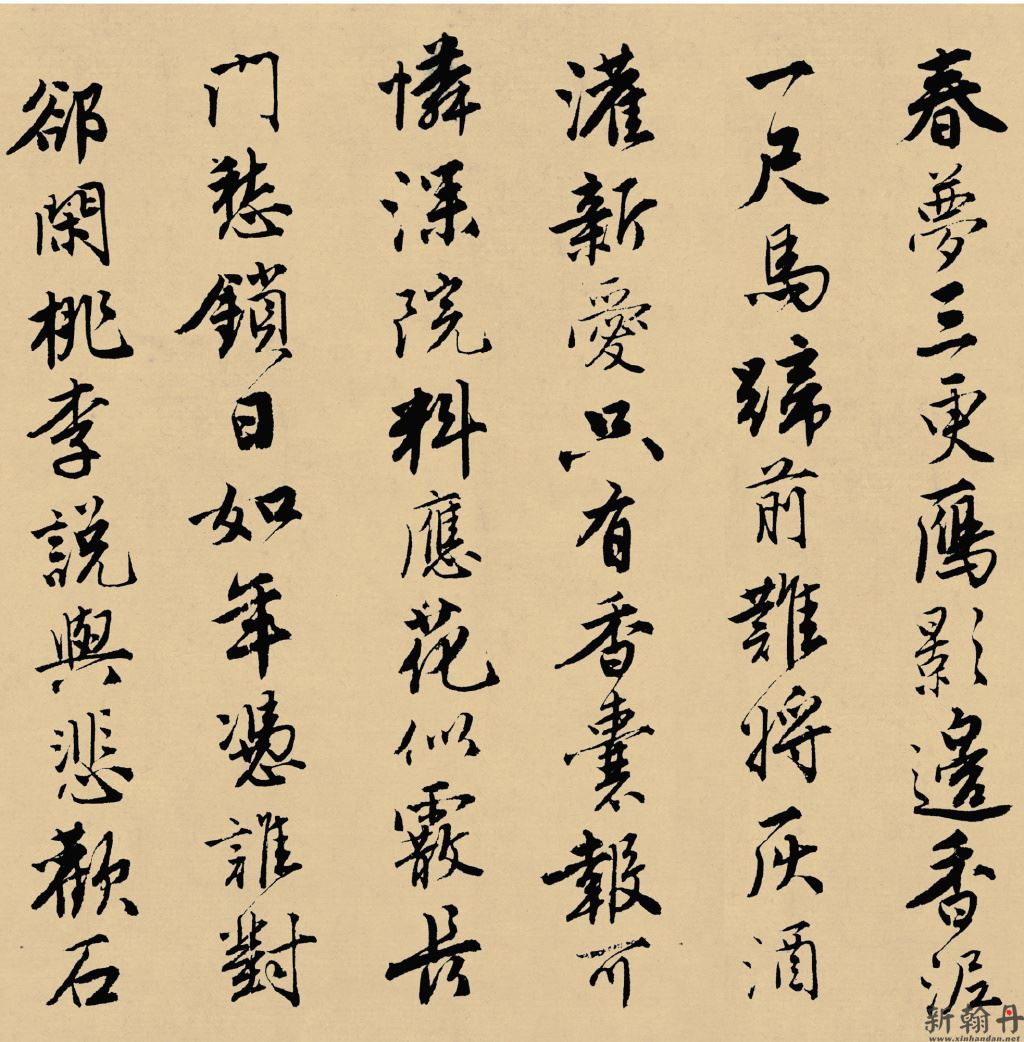 春夢三更鴈影邊香泥
一尺馬蹄前難將灰酒
灌新愛只有香囊報可
憐深院料應花似霰長
門愁鎖日如年憑誰對
卻閑桃李說與悲歡石
新翰丹
www.xinhandan.net